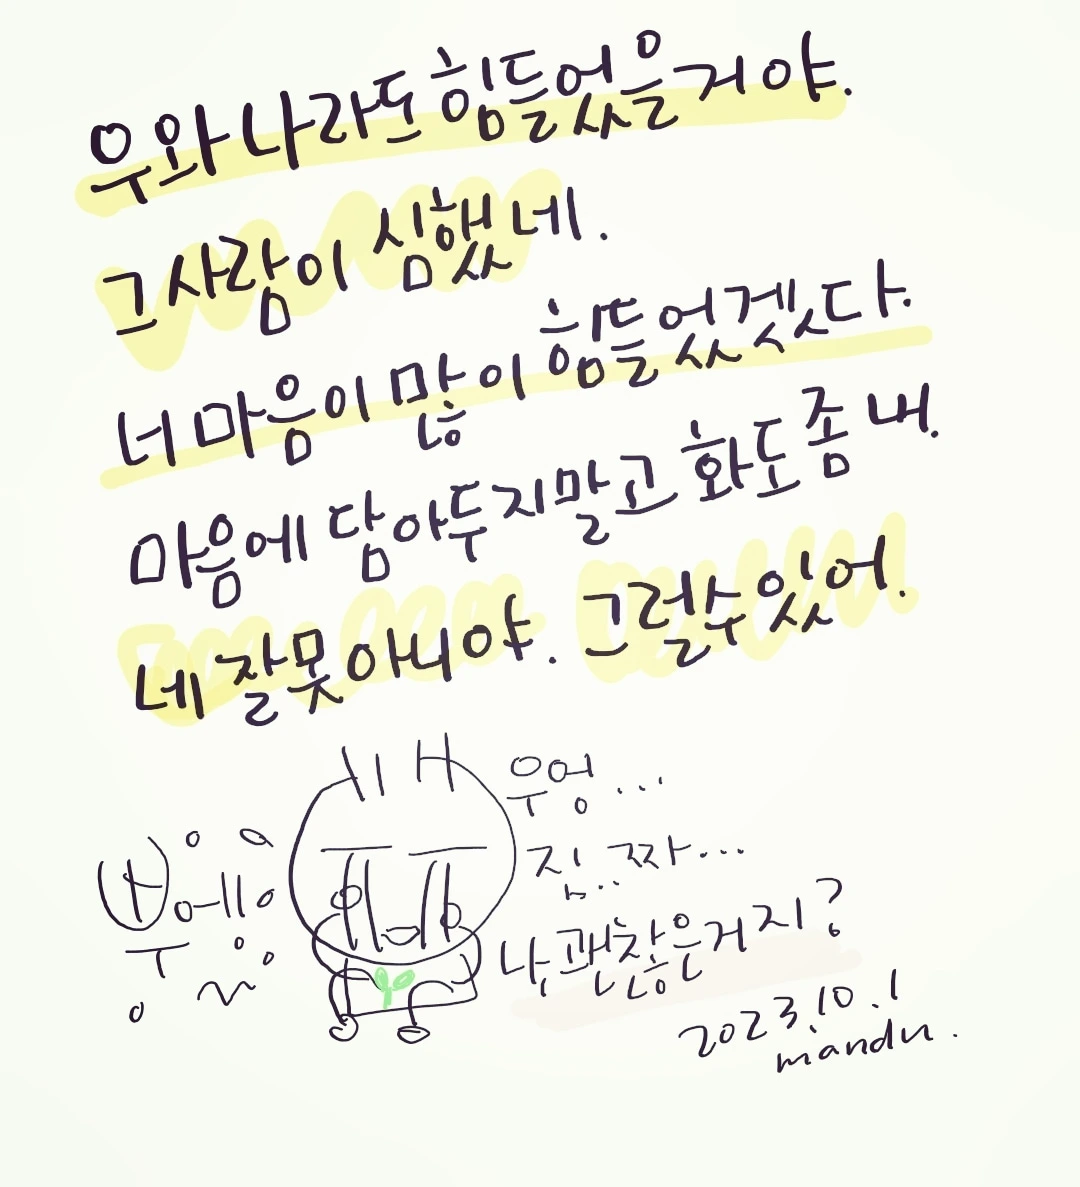 우와 나라도 힘들었을거야.
그 사람이 심했네.
너 마음이 많이 힘들었겠다.
마음에 담아두지말고 화도 좀 내.
네 잘못 아니야. 그럴수 있어.
우엉...
진..짜...
나, 괜찮은거지?
2023.10.1
mandu.